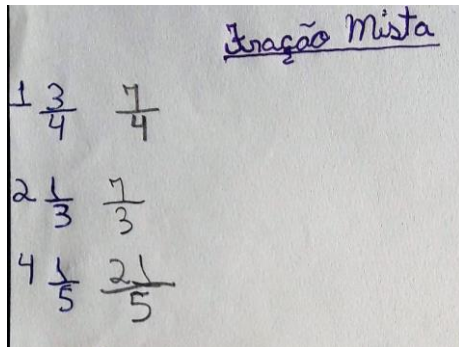 Fração Mista
1 3/4 7/4
2 1/3 7/3
4 1/5 21/5